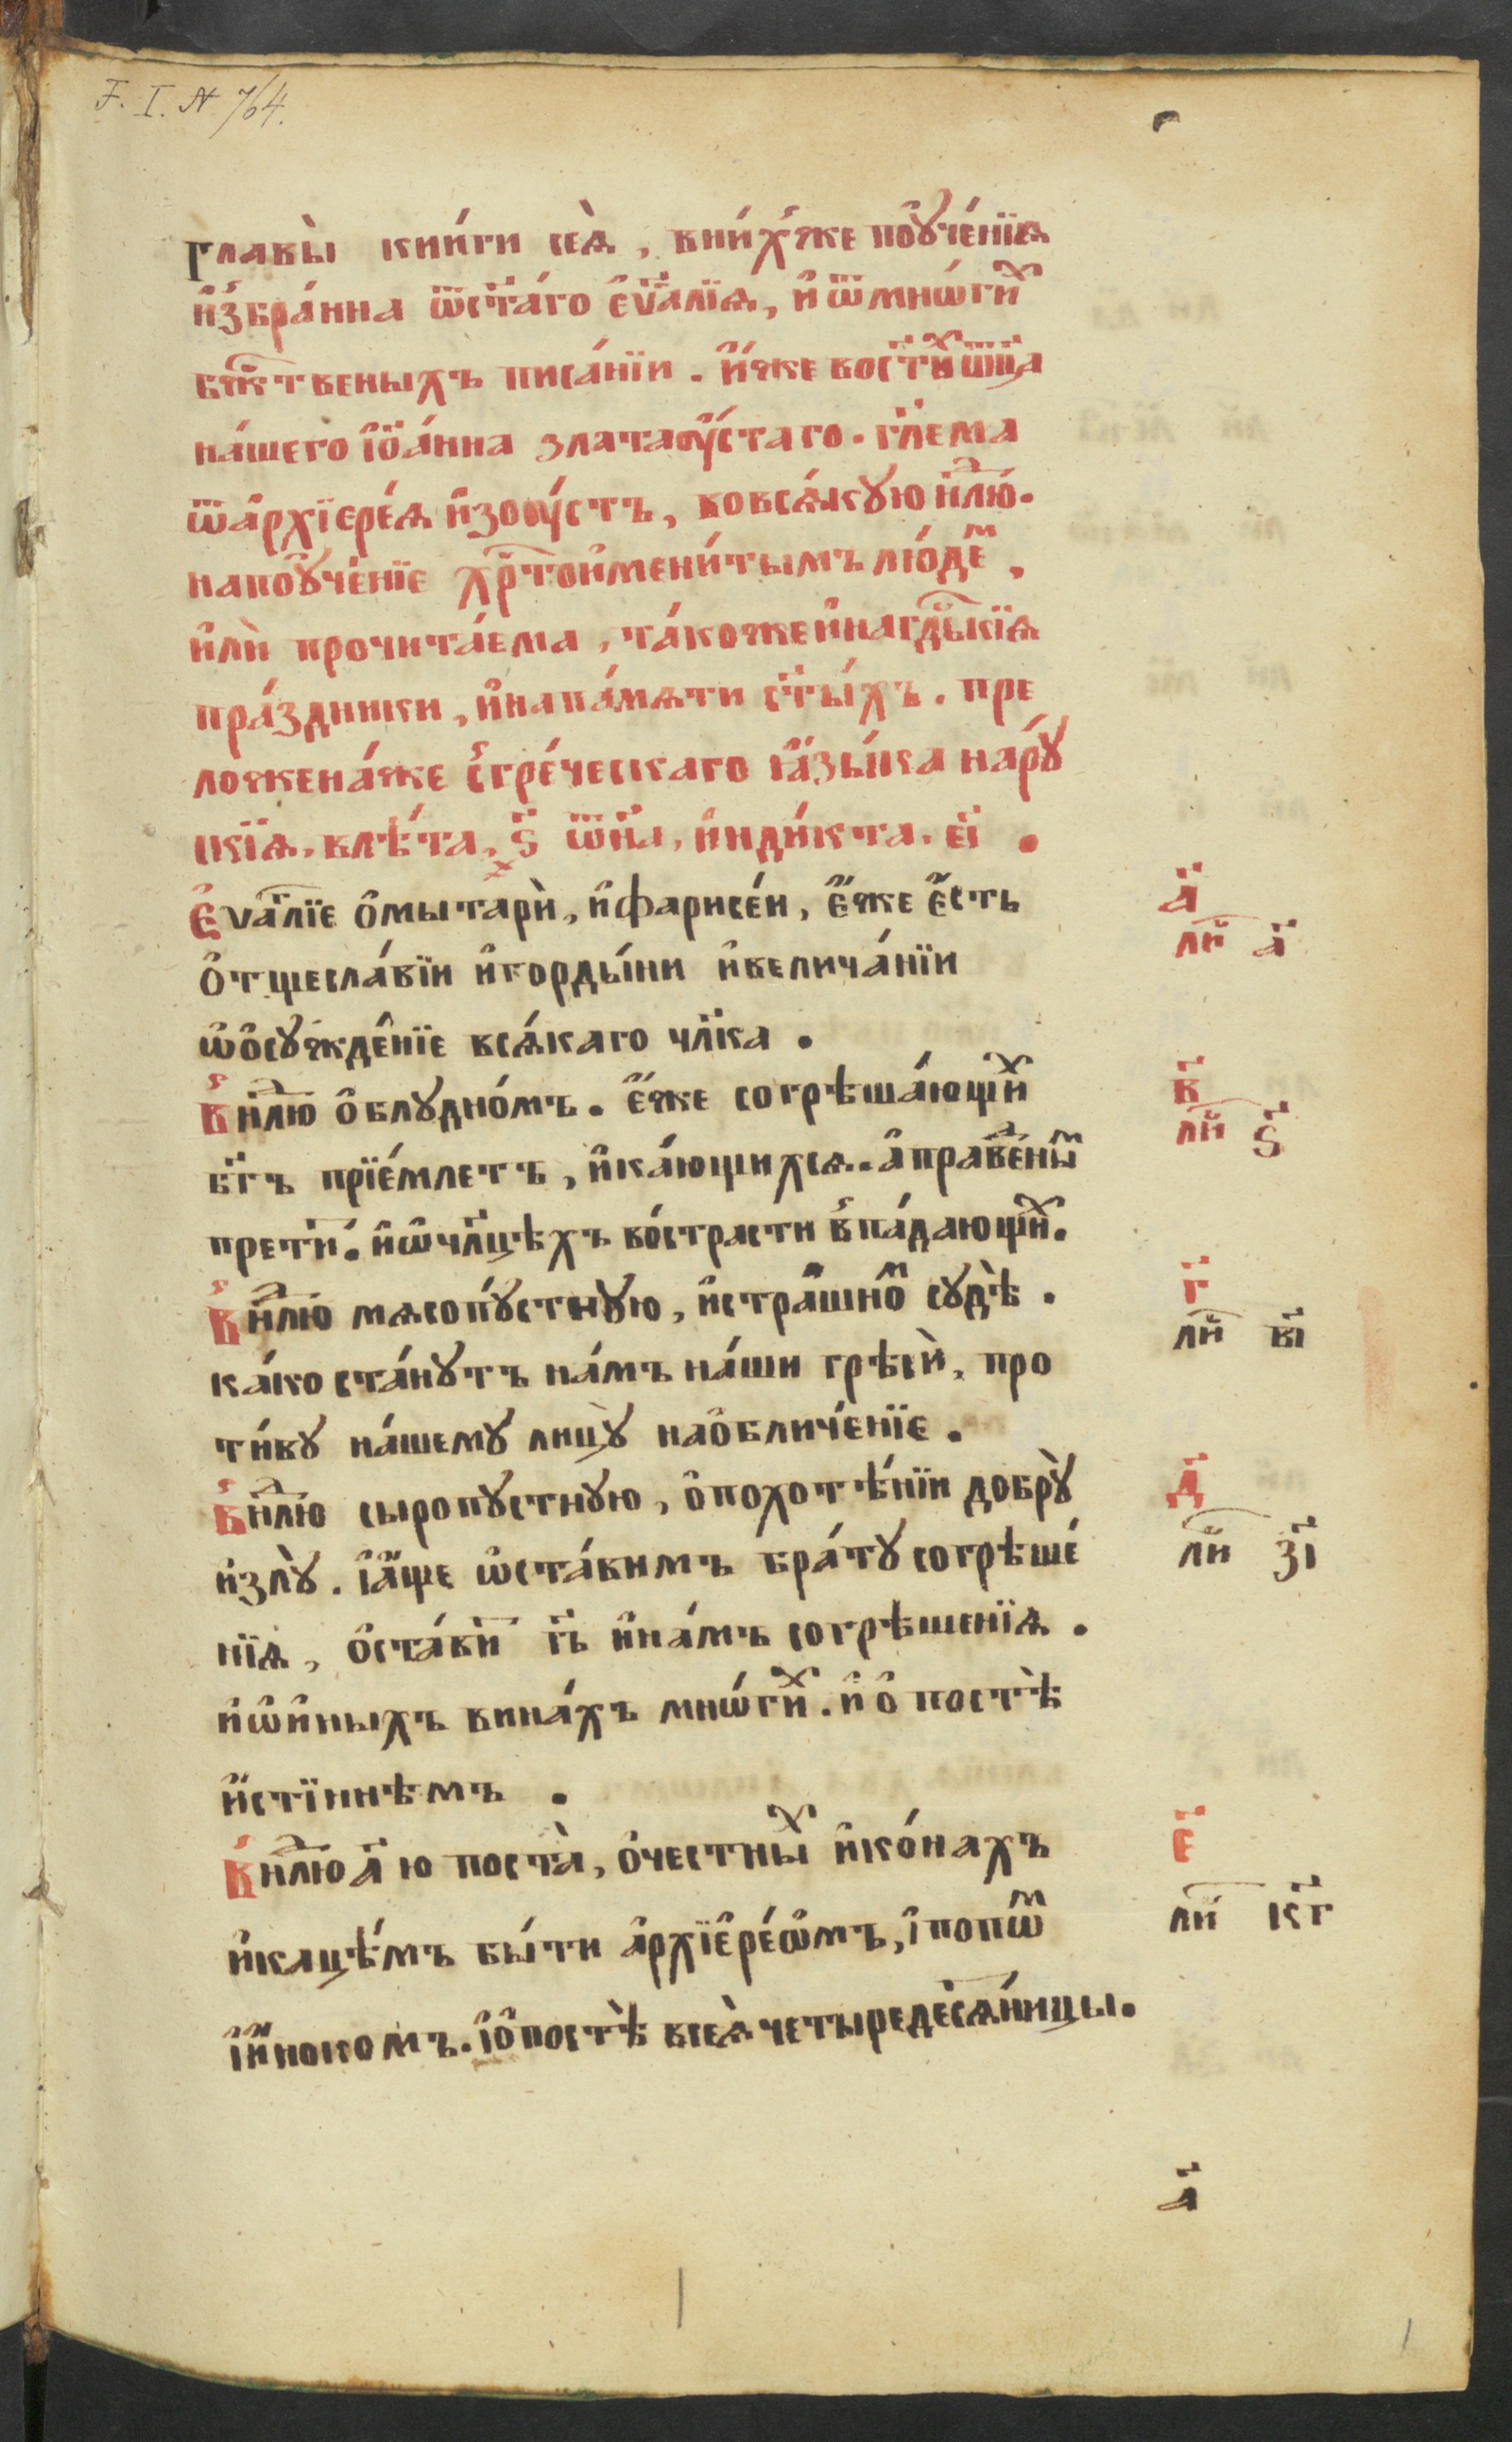 F. I. N 764.
Главы̀ кни́ги сеѧ̀, вни́х҃же поꙋче́нїѧ
и҆збра́нна ѿст҃а́го є҆ѵⷢ҇а́лїѧ, и҆ ѿмнѡ́гиⷯ
бжⷭ҇твеныхъ писа́нїи. и҆́же вост҃ыⷯ ѻ҆ц҃а
на́шего і҆ѡа́нна златаꙋ́стаго. гл҃ема
ѿа҆рхїере́ѧ и҆зоꙋ́стъ, вовсѧ́кꙋю нлⷣю.
напоꙋче́нїе хрⷭ҇тои҆мени́тымъ лю́деⷨ,
и҆лѝ прочита́ема, та́коже и҆нагдⷭ҇ькїѧ
пра́здники, и҆напа́мѧти ст҃ы́хъ. пре
ложена́же с̾гре́ческаго ꙗ҆зы́ка нарꙋ́
скїѧ, влѣ́та, ҂ѕ҃ ѿн҃а, и҆нди́кта. є҃і.
Є҆ѵⷢ҇а́лїе ѡ҆мытарѝ, и҆фарисе́и, є҆́же є҆́сть
ѻ҆тщесла́вїи и҆горды́ни и҆велича́нїи
ѡ҆ѻ҆сꙋжде́нїе всѧ́каго чл҃ка.
а҃
лиⷭ҇ а҃
В̾нлⷣю ѻ҆блꙋдно́мъ. є҆́же согрѣша́ющиⷯ
бг҃ъ прїе́млетъ, и҆ка́ющихсѧ. а҆праⷣвеныⷨ
претиⷮ. и҆ѡ҆чл҃цѣхъ во́страсти в̾па́дающиⷯ.
в҃
лиⷭ҇ ѕ҃
В̾нлⷣю мѧсопꙋ́стнꙋю, и҆стра́шноⷨ сꙋдѣ̀.
ка́ко ста́нꙋтъ на́мъ на́ши грѣсѝ, про
ти́вꙋ на́шемꙋ лицꙋ̀ наѻ҆бличе́нїе.
г҃
лиⷭ҇ в҃і
В̾нлⷣю сыропꙋстнꙋю, ѻ҆похотѣ́нїи добрꙋ̀
изл꙼ꙋ̀. і҆а҆́ще ѡ҆ста́вимъ бра́тꙋ согрѣше́
нїѧ, ѻ҆ста́виⷮ гⷭ҇ь и҆на́мъ согрѣшенїѧ.
и҆ѡ҆и҆ныхъ вина́хъ мнѡ́гиⷯ. и҆ ѻ҆ постѣ̀
и҆́стїннѣмъ.
д҃
лиⷭ҇ з҃і
В̾нлⷣю а҃ю поста̀, ѻ҆честныⷯ и҆ко́нахъ
и҆кацѣ́мъ бы́ти а҆рхїе҆ре́ѡмъ, і҆ попѡⷨ
і҆и҆нокомъ. і҆ѻ҆постѣ̀ всеѧ̀ четыредесѧ́тницы.
е҃
лиⷭ҇ к҃г
а҃
1